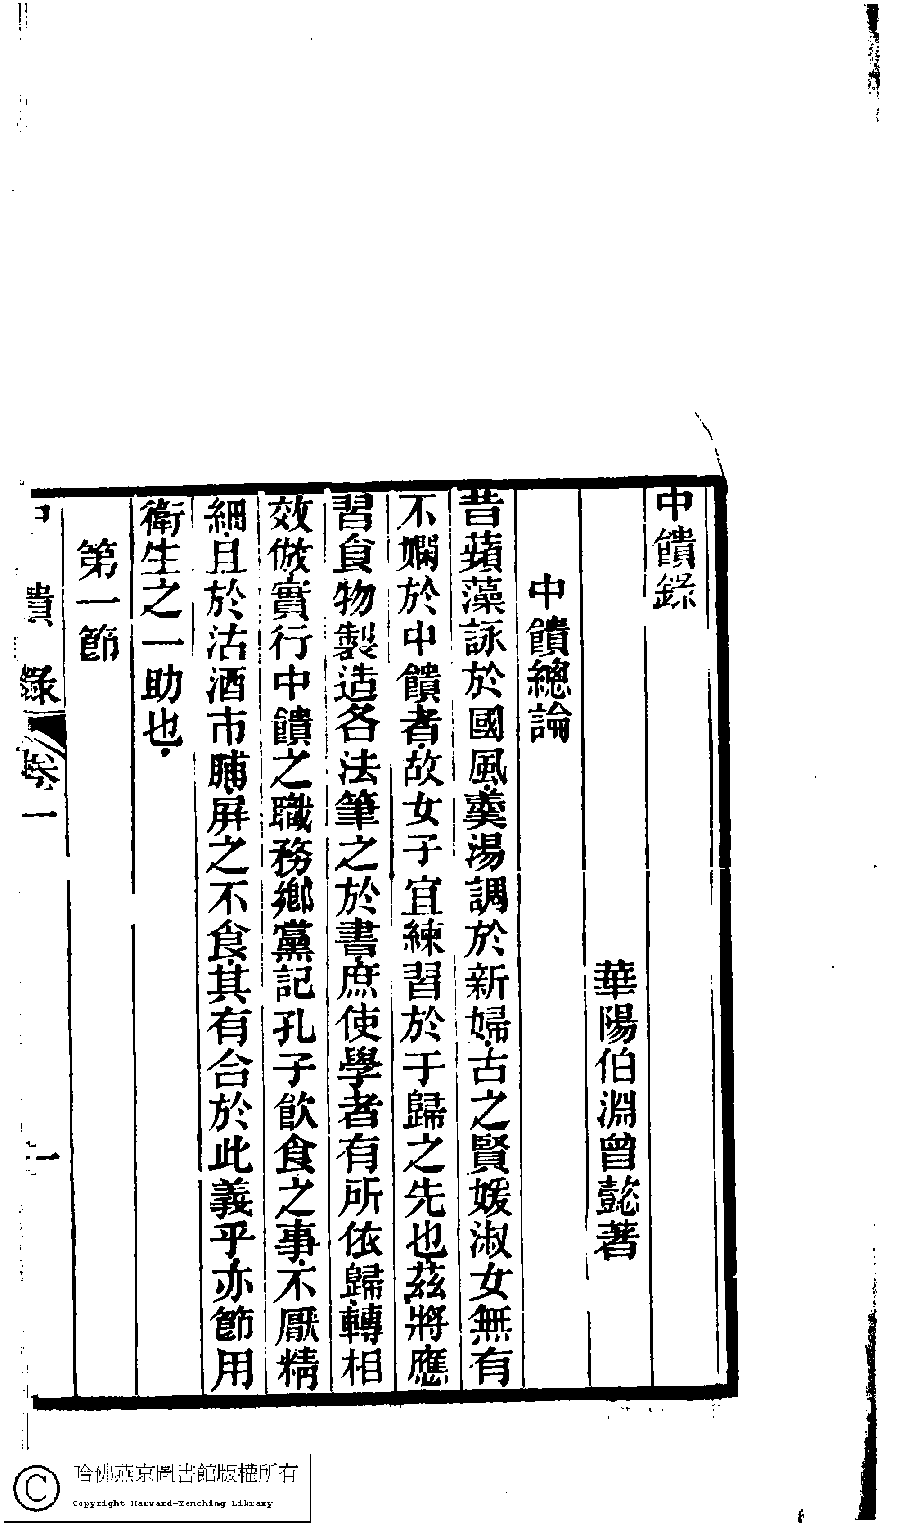 中饋錄
華陽伯淵曾懿著
中饋總論
昔蘋藻詠於國風羹湯調於新婦古之賢媛淑女無有
不嫻於中饋者故女子宜練習於于歸之先也茲將應
習食物製造各法筆之於書庶使學者有所依歸轉相
效倣實行中饋之職務鄉黨記孔子飲食之事不厭精
細且於沽酒市脯屏之不食其有合於此義乎亦節用
衛生之一助也
第一節
中饋錄 卷一 一
哈佛燕京圖書館版權所有
Copyright Harvard-Yenching Library